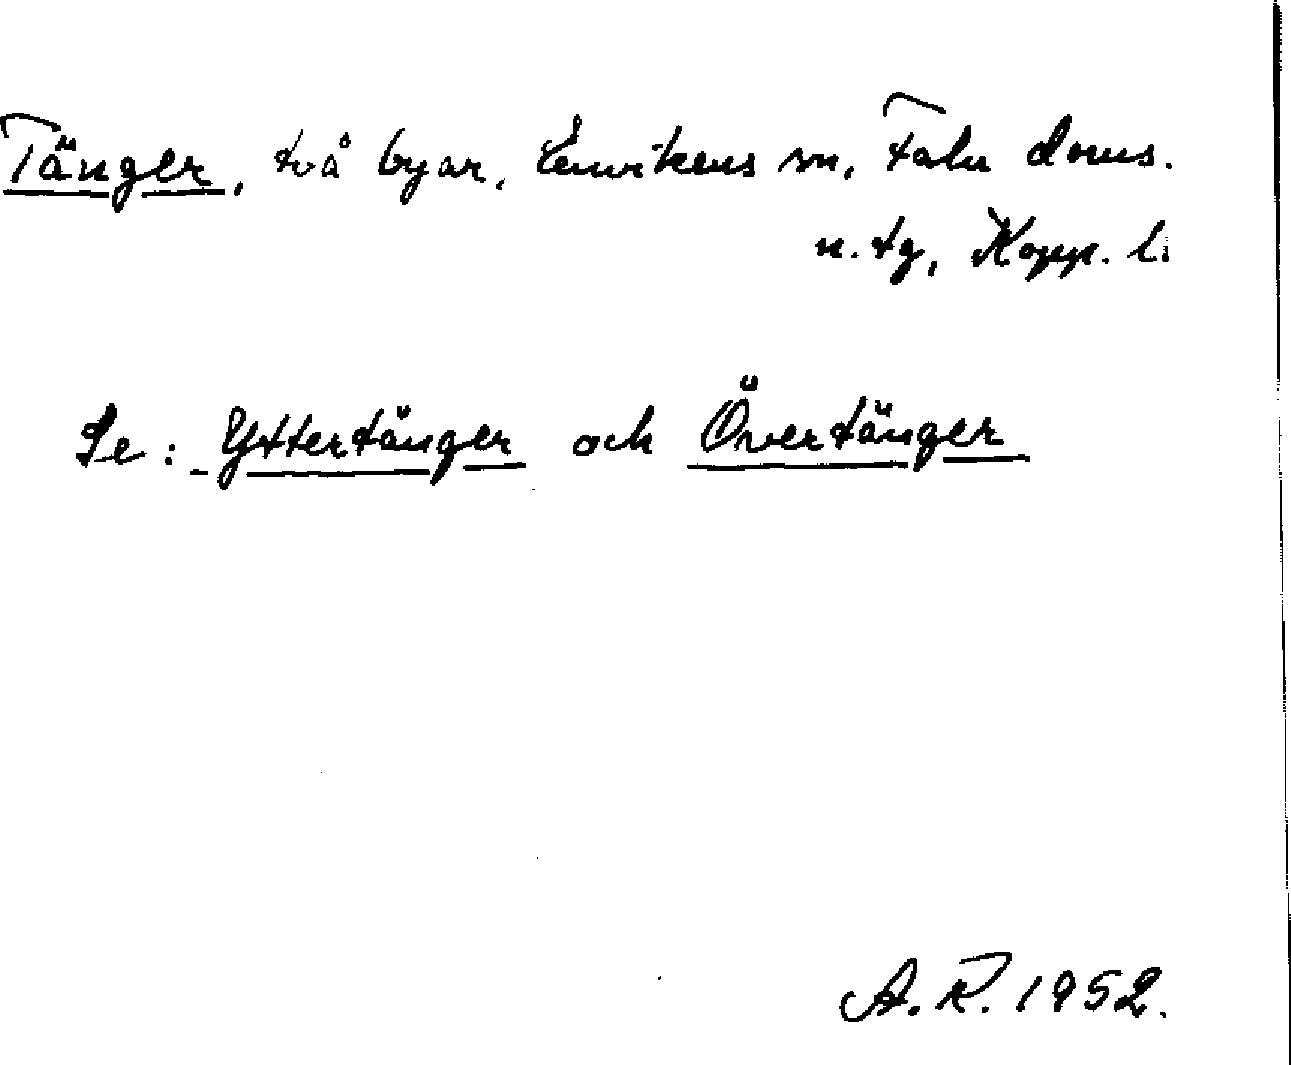 Tänger, två byar, Envikens sn, Falu doms.
n. tg, Kopp. l.
Se: Yttertänger och Övertänger
A. R. 1952.